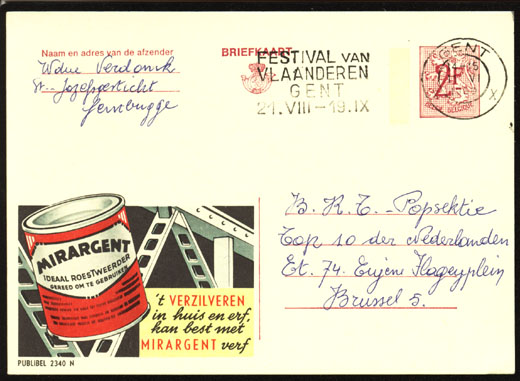 Naam en adres van de afzender
Wdue Verdonk
St. Jozefgesticht
Gembrugge
BRIEFKAART
FESTIVAL VAN
VLAANDEREN
GENT
21.VIII-19.IX
GENT
2F
B.R.T. - Popsektie
Top 10 der Nederlanden
Et. 74. Eujeni Flageyplein
Brussel 5.
MIRARGENT
IDEAAL ROESTWEERDER
GEREED OM TE GEBRUIKEN
't VERZILVEREN
in huis en erf,
kan best met
MIRARGENT verf
PUBLIBEL 2340 N